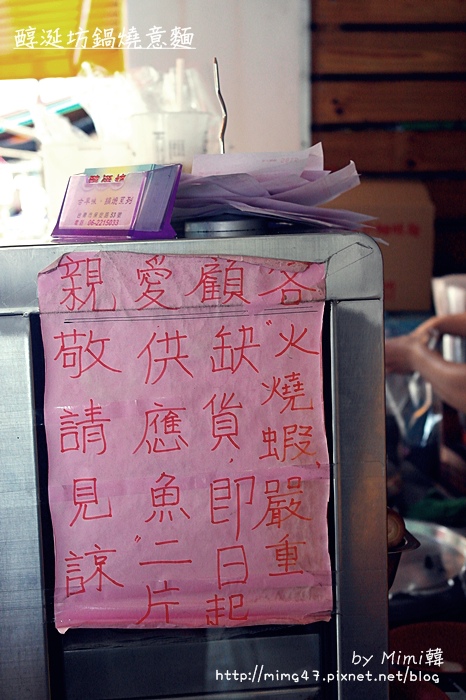 醇涎坊鍋燒意麵
醇涎坊
古早味．鍋燒系列
06-2215033
親愛顧客
"火燒蝦、嚴重
缺貨，即日起
供應魚"二片
敬請見諒
by Mimi韓
http://mimg47.pixnet.net/blog